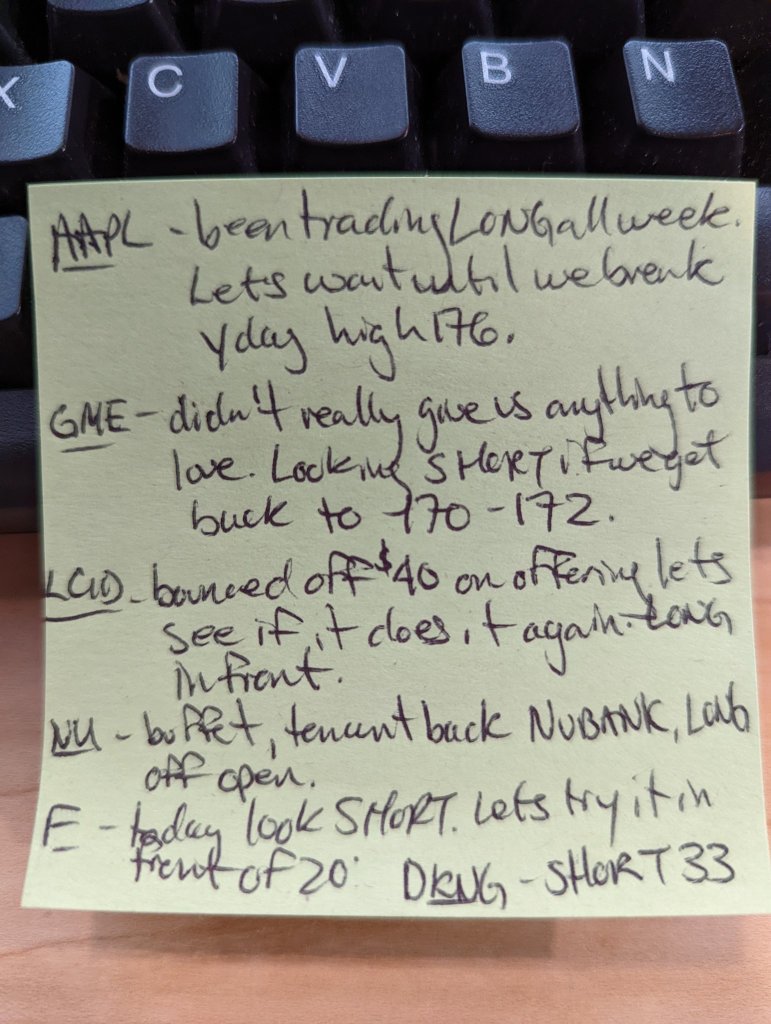 X C V B N
AAPL - been trading LONG all week.
Lets wait until we break
yday high 176.
GME - didn't really give us anything to
love. Looking SHORT if we get
back to 170-172.
LCID - bounced off $40 on offering lets
see if it does it again. LONG
in front.
NU - buffet, tencent back NUBANK, LONG
off open.
F - today look SHORT. Lets try it in
front of 20.
DKNG - SHORT 33